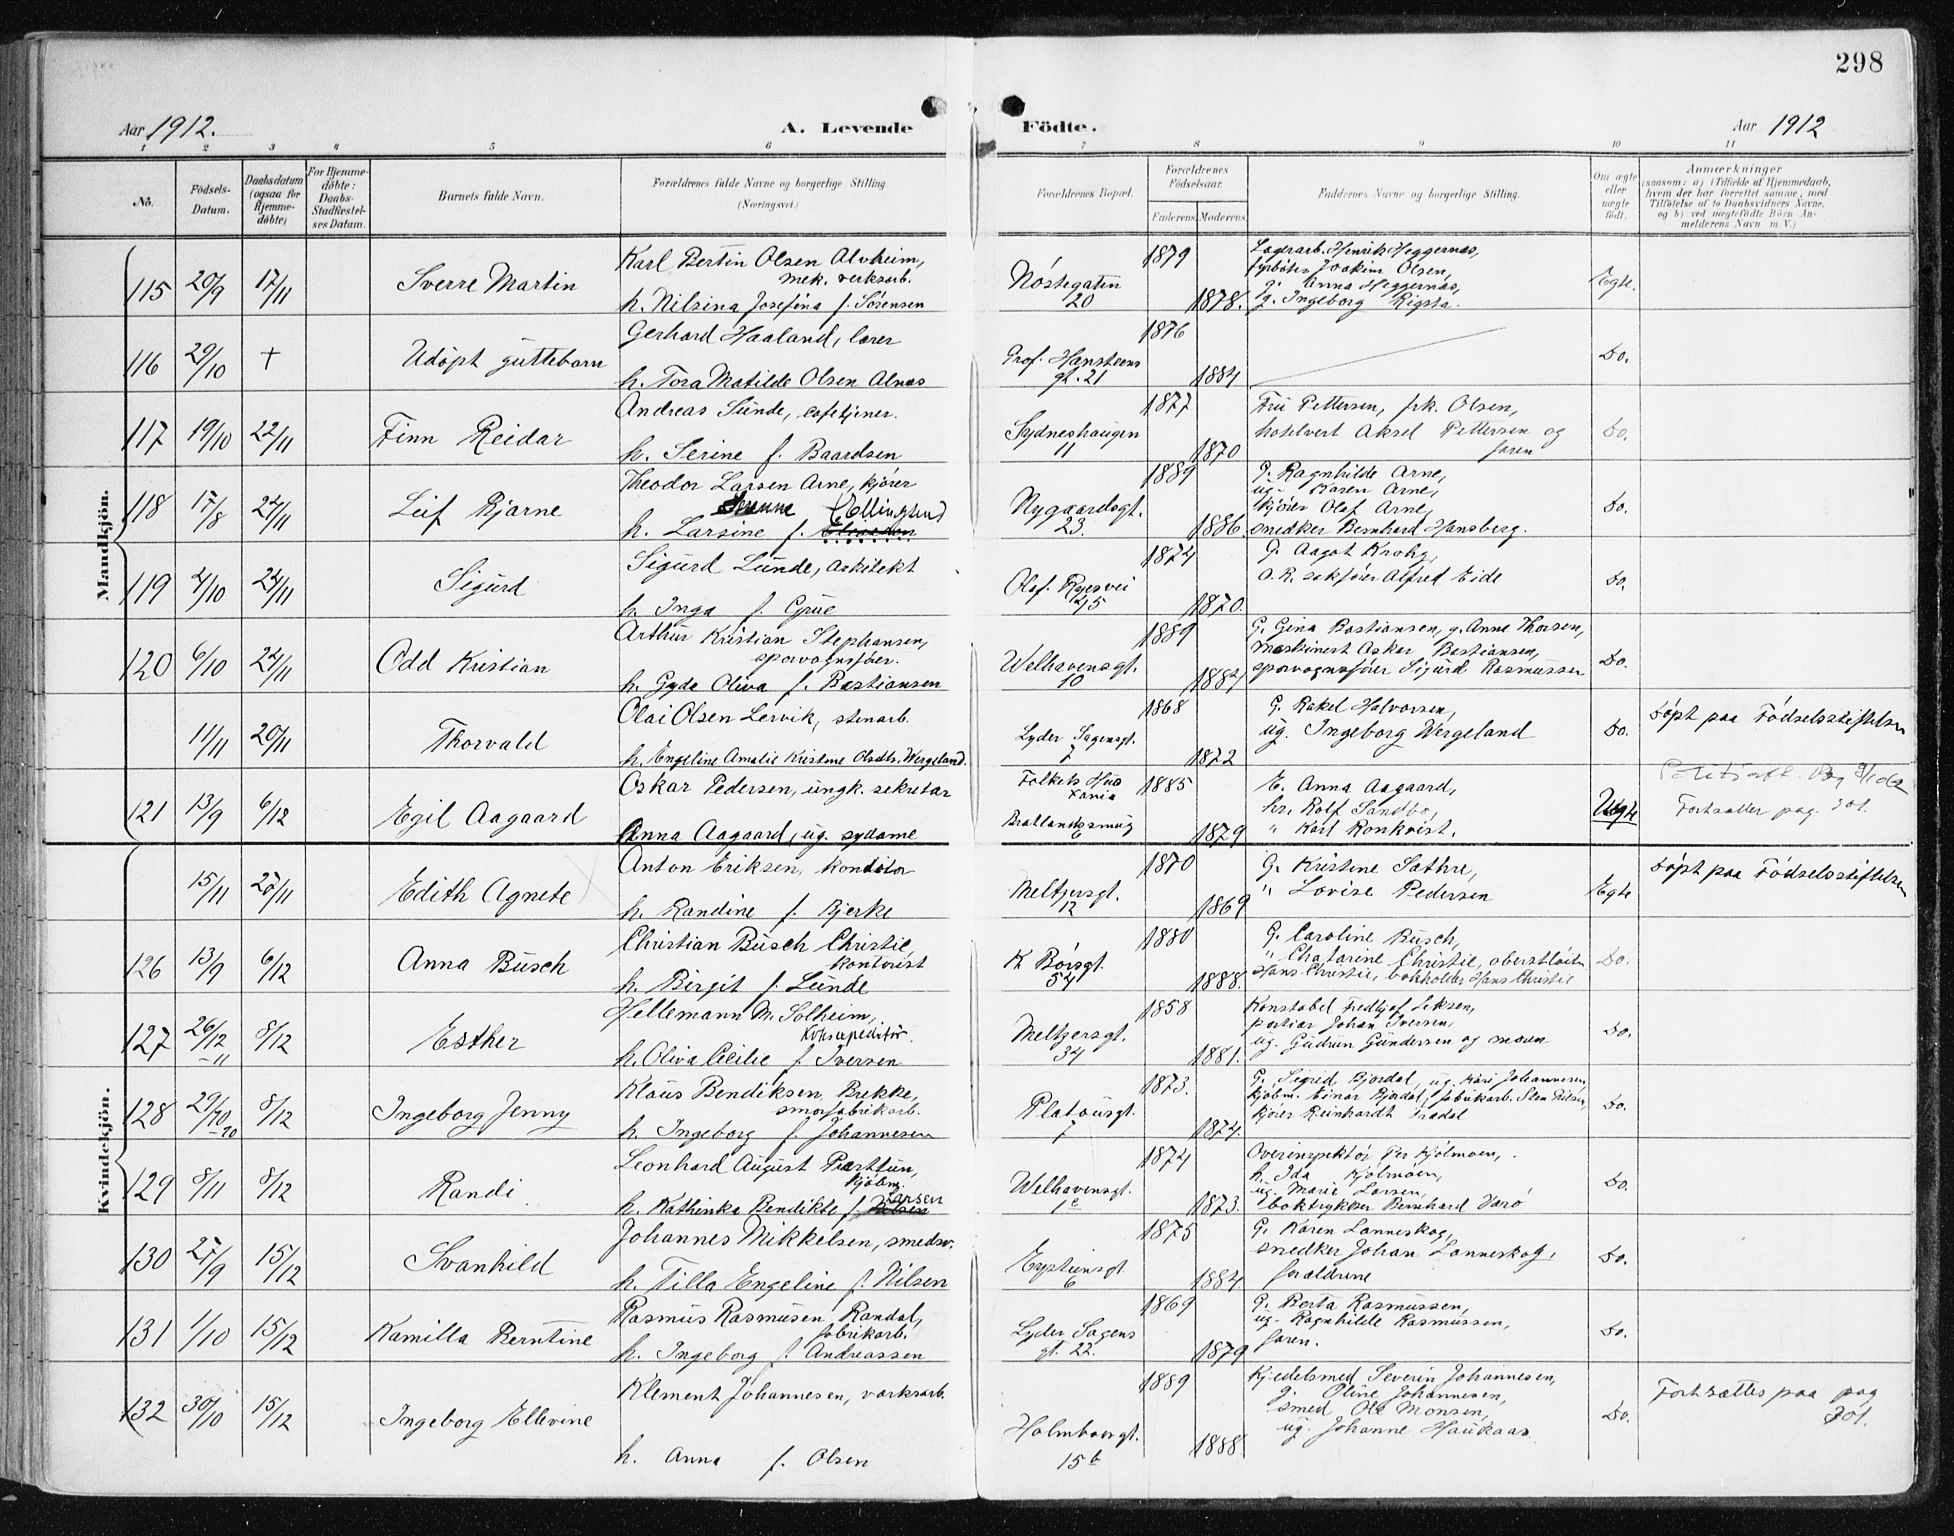 298
Aar 1912.
A. Levende Födte.
Aar 1912
1 2 3 4 5 6 7 8 9 10 11
No.
Födsels-Datum.
Daabsdatum (ogsaa for Hjemmedöbte)
For Hjemmedöbte: Daabs-Stadfæstelses Datum.
Barnets fulde Navn.
Forældrenes fulde Navne og borgerlige Stilling (Næringsvei.)
Forældrenes Bopæl.
Forældrenes Födselsaar.
Faderens Moderens
Faddernes Navne og borgerlige Stilling.
Om ægte eller uægte födt.
Anmærkninger
(saasom: a) i Tilfælde af Hjemmedaab,
hvem der har forrettet samme, med
Tilföielse af to Daabsvidners Navne,
og b) ved uægtefödte Börn An-
melderens Navn m. V.)
Mandkjön.
115 20/9 17/11 Sverre Martin
Karl Bertin Olsen Alvheim,
mek. verksarb.
h. Nilsina Josefina f. Sørensen
Nöstegaten
20
1879
1878.
Lagerarb. Henrik Heggernæs,
fyrböter Joakim Olsen,
g. Anna Heggernæs,
g. Ingeborg Rigsta.
Egte.
116 29/10 + Udöpt guttebarn
Gerhard Haaland, lærer
h. Tora Matilde Olsen Alnæs
Prof. Hansteens
gt. 21
1876
1884
Do.
117 19/10 22/11 Finn Reidar
Andreas Sunde, cafetjener.
h. Serine f. Baardsen
Sydneshaugen
11
1877
1870
Fru Pettersen, frk. Olsen,
hotelvert Aksel Pettersen og
faren
Do.
118 17/8 24/11 Leif Bjarne
Theodor Larsen Arne, kjører
h. Larsine f.
Nygaardsgt.
23.
1889
1886.
G. Ragnhilde Arne,
ug. Karen Arne,
kjører Olaf Arne,
snedker Bernhard Hansberg.
Do.
119 4/10 24/11 Sigurd
Sigurd Lunde, arkitekt
h. Inga f. Grue
Olaf Ryesvei
45
1874
1870.
G. Aagot Krohg,
O.R. sakfører Alfred Eide
Do.
120 6/10 24/11 Odd Kristian
Arthur Kristian Stephansen,
sporvognsfører.
h. Gyda Oliva f. Bastiansen
Welhavensgt.
10
1889
1887
G. Gina Bastiansen, g. Anne Thorsen,
maskinert Asker Bastiansen,
sporvognsfører Sigurd Rasmussen
Do.
11/11 20/11 Thorvald
Olai Olsen Lervik, stenarb.
h. Engeline Amalie Kristene Olsdtr. Wergeland.
Lyder Sagensgt.
7
1868
1872
G. Rakel Halvorsen,
ug. Ingeborg Wergeland
Do.
Döpt paa Födselsstiftelsen
121 13/9 6/12 Egil Aagaard
Oskar Pedersen, ungk. sekretær
Anna Aagaard, ug. sydame
Folkets Hus
Kania
Bratlandssmug
6
1885
1879
E. Anna Aagaard,
hr. Rolf Sandbo,
" Karl Ronkvist.
Uegte
Fortsætter pag. 301.
Kvindekjön.
15/11 25/11 Edith Agnete
Anton Eriksen, konditor
h. Randine f. Bjerke
Meltzersgt.
12
1870
1869
G. Kristine Sæthre,
" Lovise Pedersen
Egte
Döpt paa Födselsstiftelsen
126 13/9 6/12 Anna Busch
Christian Busch Christie,
kontorist
h. Birgit f. Lunde
K Börsgt.
54
1880
1888.
G. Caroline Busch,
" Chatarine Christie, oberstlöitn
Hans Christie, bokholder Hans Christie
Do.
127 26/12 –11 8/12 Esther
Hellemann M. Solheim,
h. Oliva Cecilie f. Iversen
Meltzersgt.
34
1858
1881.
Konstabel Fredtjof Eiksen,
portier Johan Iversen,
ug. Gudrun Gundersen og moren
Do.
128 29/10 8/12 Ingeborg Jenny
Klaus Bendiksen Brekke,
smørfabrikarb.
h. Ingeborg f. Johannesen
Platousgt.
7
1873.
1874.
G. Sigrid Bjordal, ug. Kari Johannesen,
kjøbm. Einar Bjordal, fabrikarb. Sten Nilsen,
kjører Reinhardt Tredal
Do.
129 8/11 8/12 Randi
Leonhard August Parttun,
kjøbm.
h. Kathinka Bendikte f. Larsen
Welhavensgt.
1c
1874
1873.
Overinspektør Per Kjölmoen,
h. Ida Kjölmoen,
ug. Marie Larsen,
boktrykker Bernhard Varö
Do.
130 27/9 15/12 Svanhild
Johannes Mikkelsen, smedsv.
h. Tilla Engeline f. Nilsen
Eystiensgt
6
1875
1884
G. Karen Lanneskog,
snedker Johan Lanneskog,
forældrene
Do.
131 1/10 15/12 Kamilla Berntine
Rasmus Rasmusen Randal,
fabrikarb.
h. Ingeborg f. Andreassen
Lyder Sagens
gt. 22.
1869
1879
G. Berta Rasmussen,
ug. Ragnhilde Rasmussen,
faren.
Do.
132 30/10 15/12 Ingeborg Ellevine
Klement Johannesen, værksarb.
h. Anna f. Olsen
Holmboesgt.
15b
1889
1888.
Kjedelsmed Severin Johannesen,
g. Oline Johannesen,
smed Ole Monsen,
ug. Johanne Haukaas
Do.
Fortsættes paa pag
301.